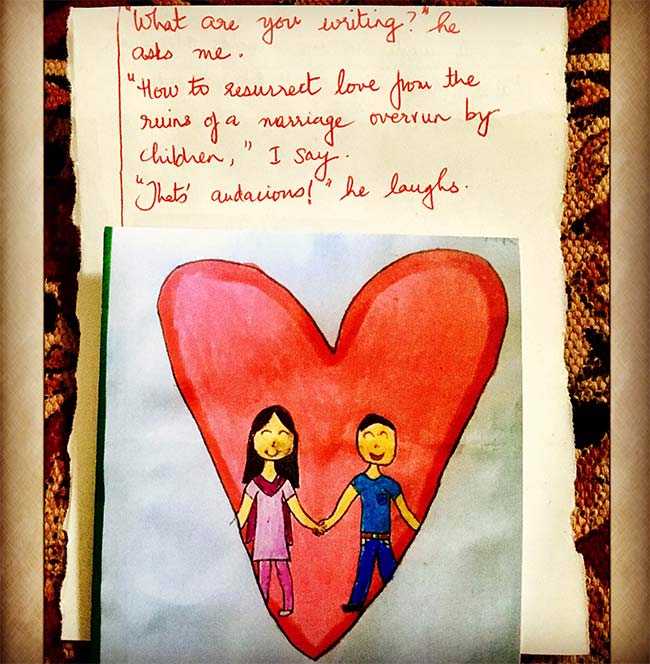 "What are you writing?" he
asks me.
"How to resurrect love from the
ruins of a marriage overrun by
children," I say.
"Thats' audacious!" he laughs.